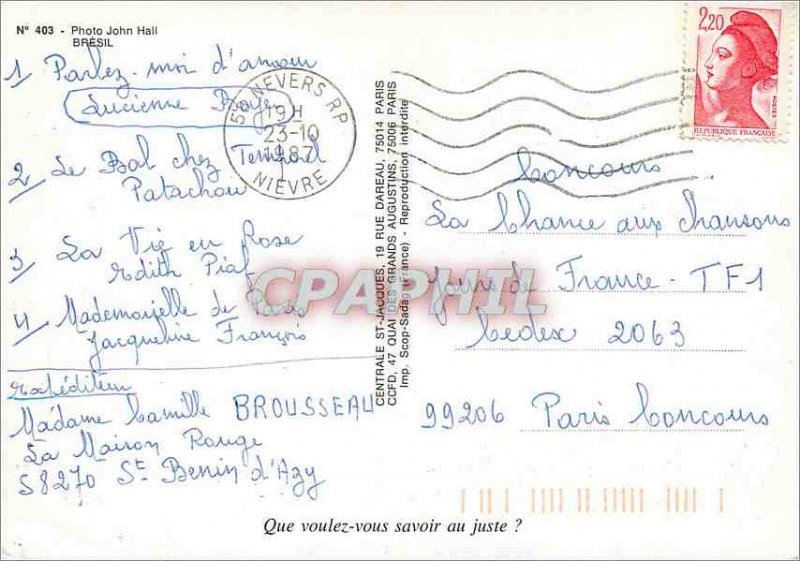 N° 403 - Photo John Hall
BRÉSIL
1/ Parlez-moi d'amour
Lucienne Boyer
2/ Le Bal chez Temporel
Patachou
3/ La Vie en Rose
Edith Piaf
4/ Mademoiselle de Paris
Jacqueline François
Expéditeur
Madame Camille BROUSSEAU
La Maison Rouge
58270 St Benin d'Azy
58 NEVERS RP
19H
23-10
1987
NIÈVRE
CENTRALE ST-JACQUES, 19 RUE DAREAU, 75014 PARIS
CCFD, 47 QUAI DES GRANDS AUGUSTINS, 75006 PARIS
Imp. Scop-Sadag (France) - Reproduction interdite
2,20
POSTES
REPUBLIQUE FRANÇAISE
Concours
La Chance aux Chansons
Jours de France - TF1
Cedex 2063
99206 Paris Concours
CPAPHIL
Que voulez-vous savoir au juste ?